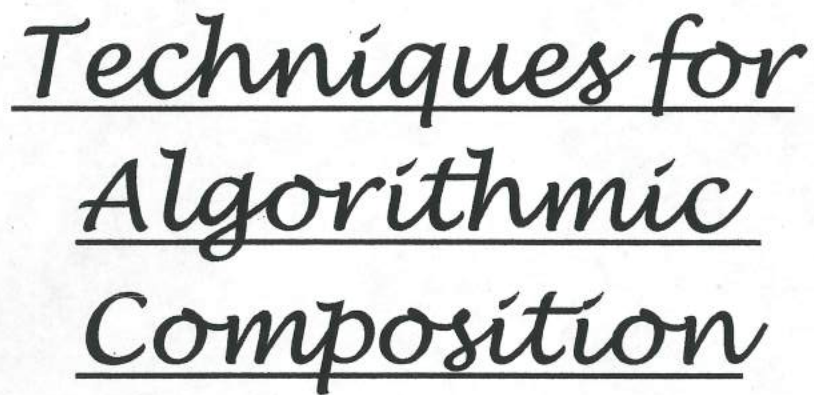 Techniques for
Algorithmic
Composition